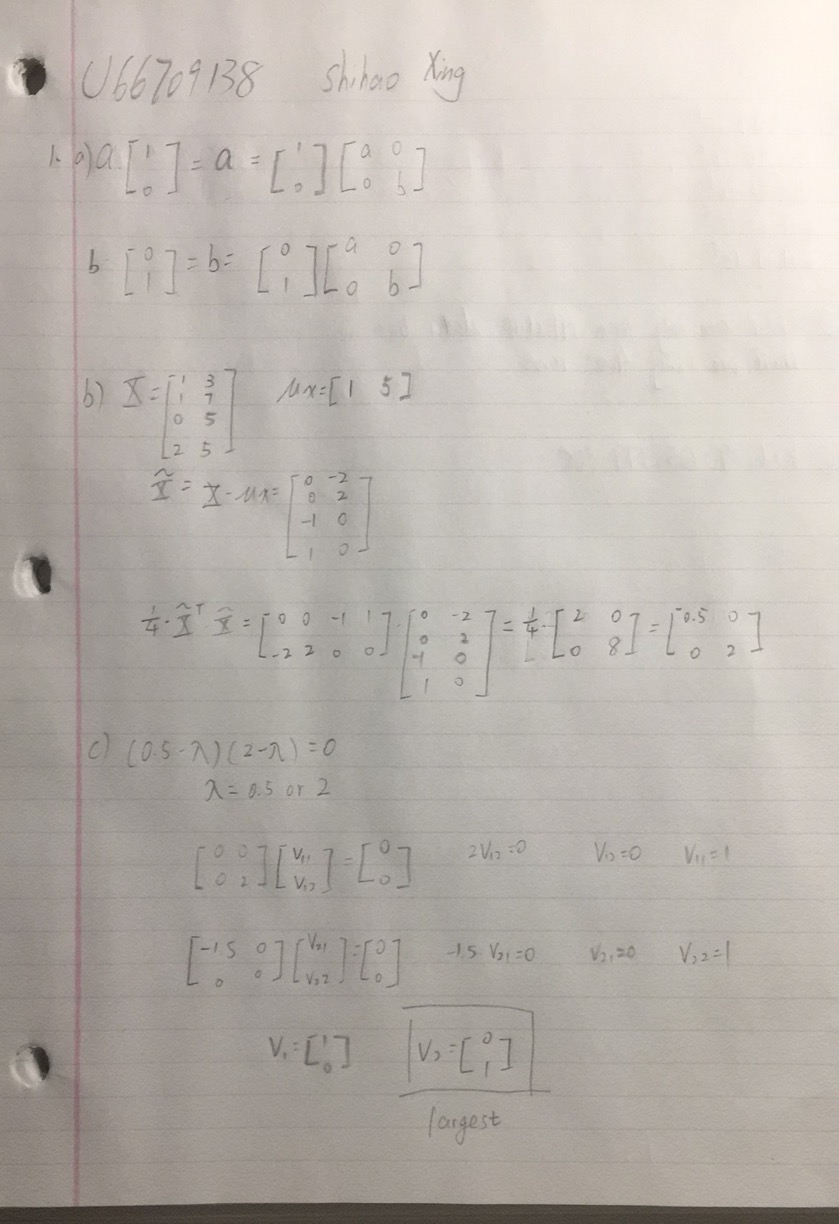 U66709138 Shihao Xing
1. a) a [1 0] = a = [1 0] [a 0 0 b]
b [0 1] = b = [0 1] [a 0 0 b]
b) X = [1 3 1 7 0 5 2 5] μx = [1 5]
X̃ = X - μx = [0 -2 0 2 -1 0 1 0]
1/4 · X̃ᵀ X̃ = [0 0 -1 1 -2 2 0 0] · [0 -2 0 2 -1 0 1 0] = 1/4 · [2 0 0 8] = [0.5 0 0 2]
c) (0.5-λ)(2-λ) = 0
λ = 0.5 or 2
[0 0 0 2] [V11 V12] = [0 0] 2V12 = 0 V12 = 0 V11 = 1
[-1.5 0 0 0] [V21 V22] = [0 0] -1.5 V21 = 0 V21 = 0 V22 = 1
V1 = [1 0] V2 = [0 1]
largest